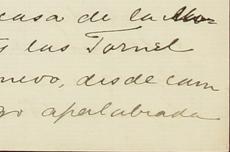 casa de la
s las Tornel
nuevo, desde cam
go apalabrada